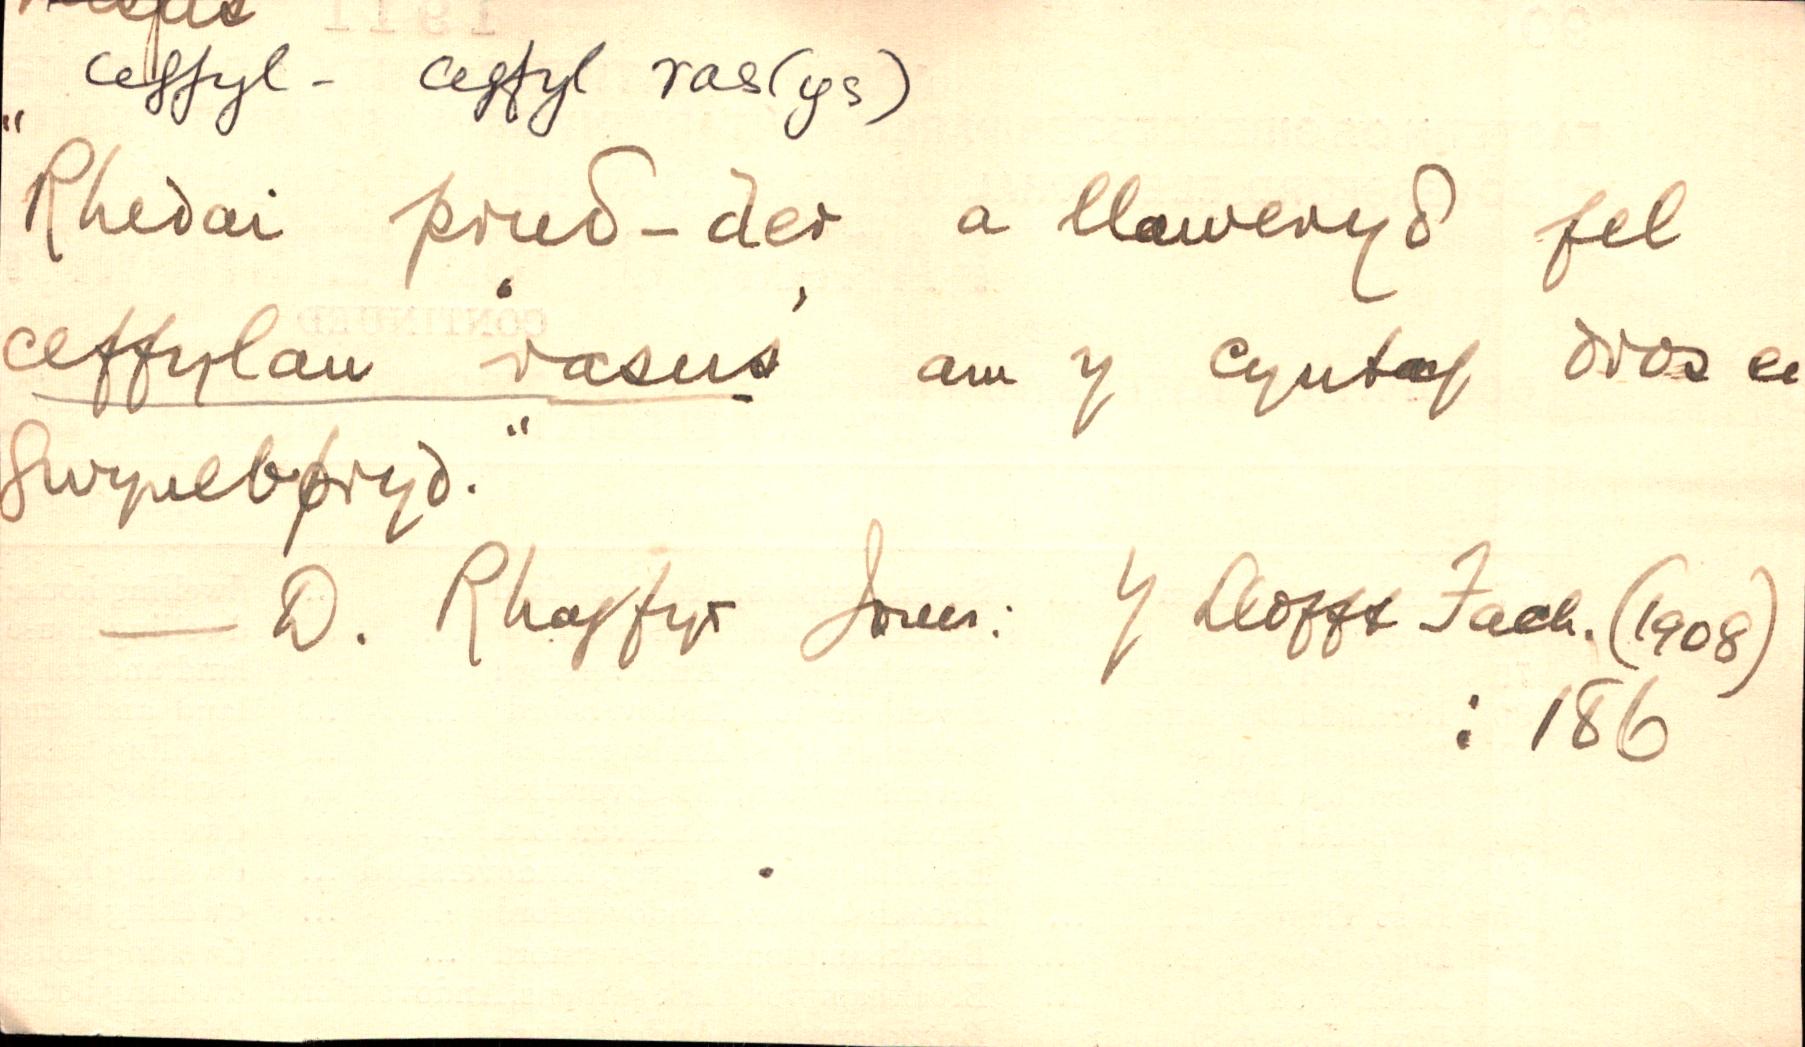 rasus
ceffyl - ceffyl ras(ys)
"Rhedai prudd-der a llawenydd fel
ceffylau 'rasus' am y cyntaf dros ei
gwynebpryd."
— D. Rhagfyr Jones: Y Llofft Fach. (1908)
: 186